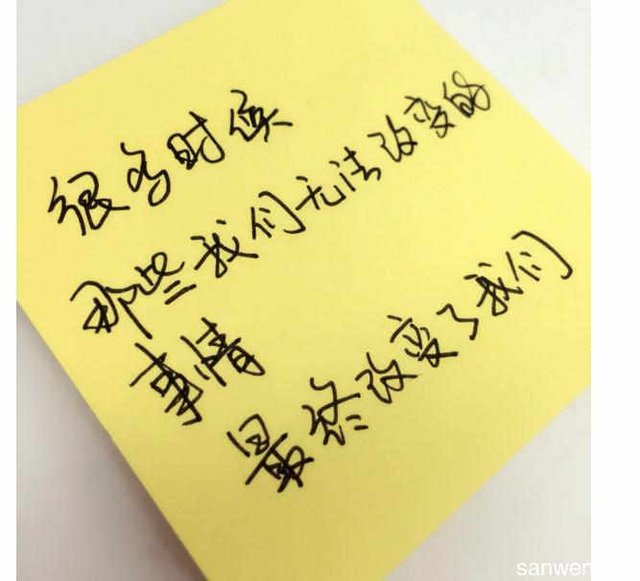 很多时候
那些我们无法改变的
事情
最终改变了我们
sanwen